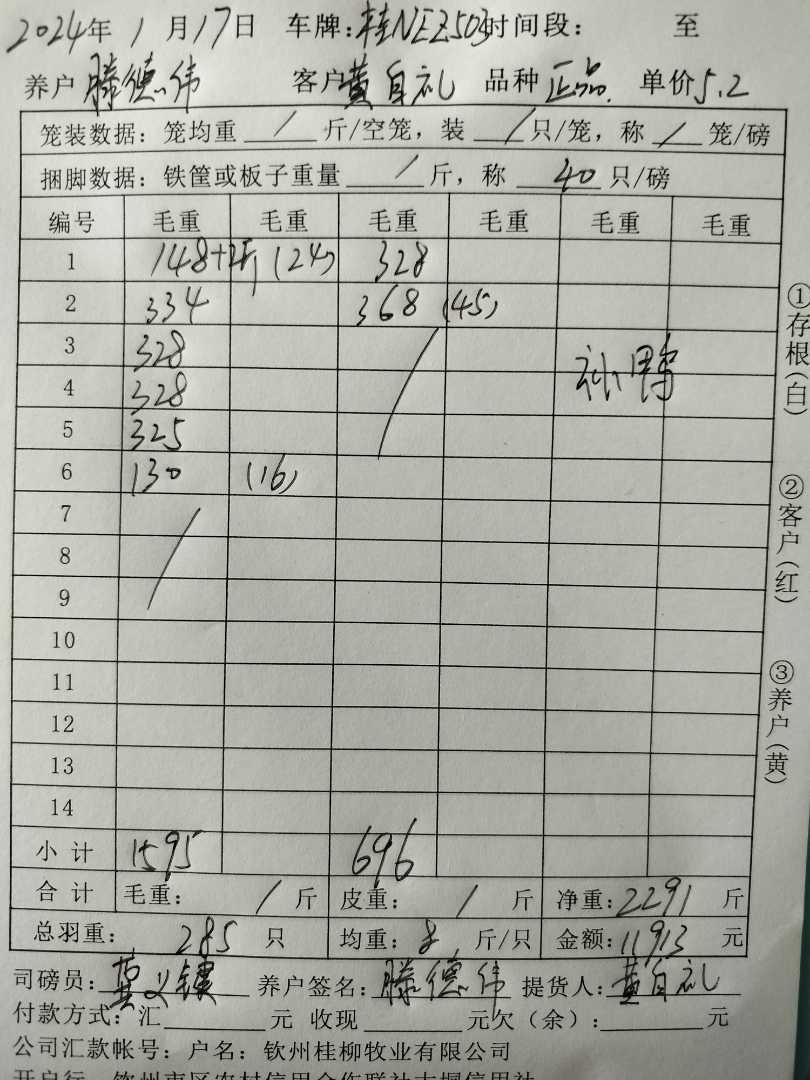 2024年 1 月 17日 车牌:桂NEZ503 时间段: 至
养户 滕德伟 客户 黄自礼 品种 正品. 单价 5.2
笼装数据: 笼均重 / 斤/空笼, 装 / 只/笼, 称 / 笼/磅
捆脚数据: 铁筐或板子重量 / 斤, 称 40 只/磅
编号 毛重 毛重 毛重 毛重 毛重 毛重
1 148+2斤 (24) 328
2 334 368 (45)
3 328 /
4 328
5 325
6 130 (16)
7 /
8
9
10
11
12
13
14
小计 1595 696
合计 毛重: / 斤 皮重: / 斤 净重: 2291 斤
总羽重: 285 只 均重: 8 斤/只 金额: 11913 元
司磅员: 养户签名: 滕德伟 提货人: 黄自礼
付款方式: 汇 元 收现 元欠(余): 元
公司汇款帐号: 户名: 钦州桂柳牧业有限公司
①存根(白)
②客户(红)
③养户(黄)